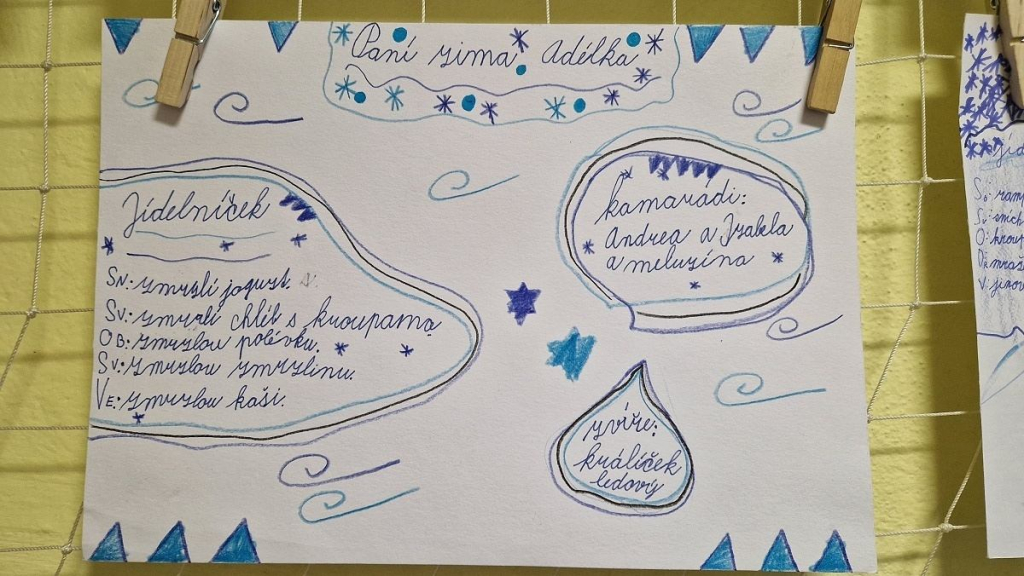 Paní zima Adélka
Jídelníček
SN: zmrzlí jogurt.
SV: zmrzlí chléb s kroupama
OB: zmrzlou polévku.
SV: zmrzlou zmrzlinu.
VE: zmrzlou kaši.
kamarádi:
Andrea a Izabela
a meluzína
zvíře:
králíček
ledový